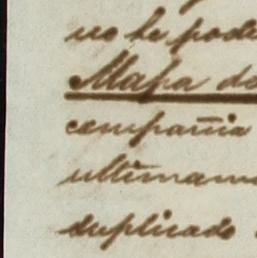 no le pode
Mapa de
compañia
ultimam
duplicado